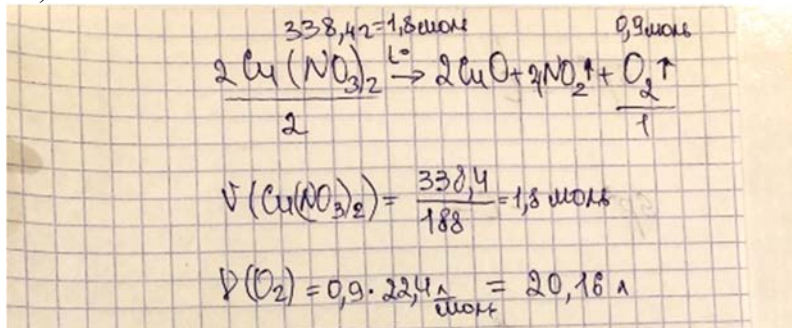 338,4г=1,8моль 0,9моль
2Cu(NO₃)₂ t°→ 2CuO+4NO₂↑+O₂↑
2 1
ν(Cu(NO₃)₂)= 338,4/188 =1,8 моль
V(O₂)=0,9·22,4 л/моль = 20,16 л